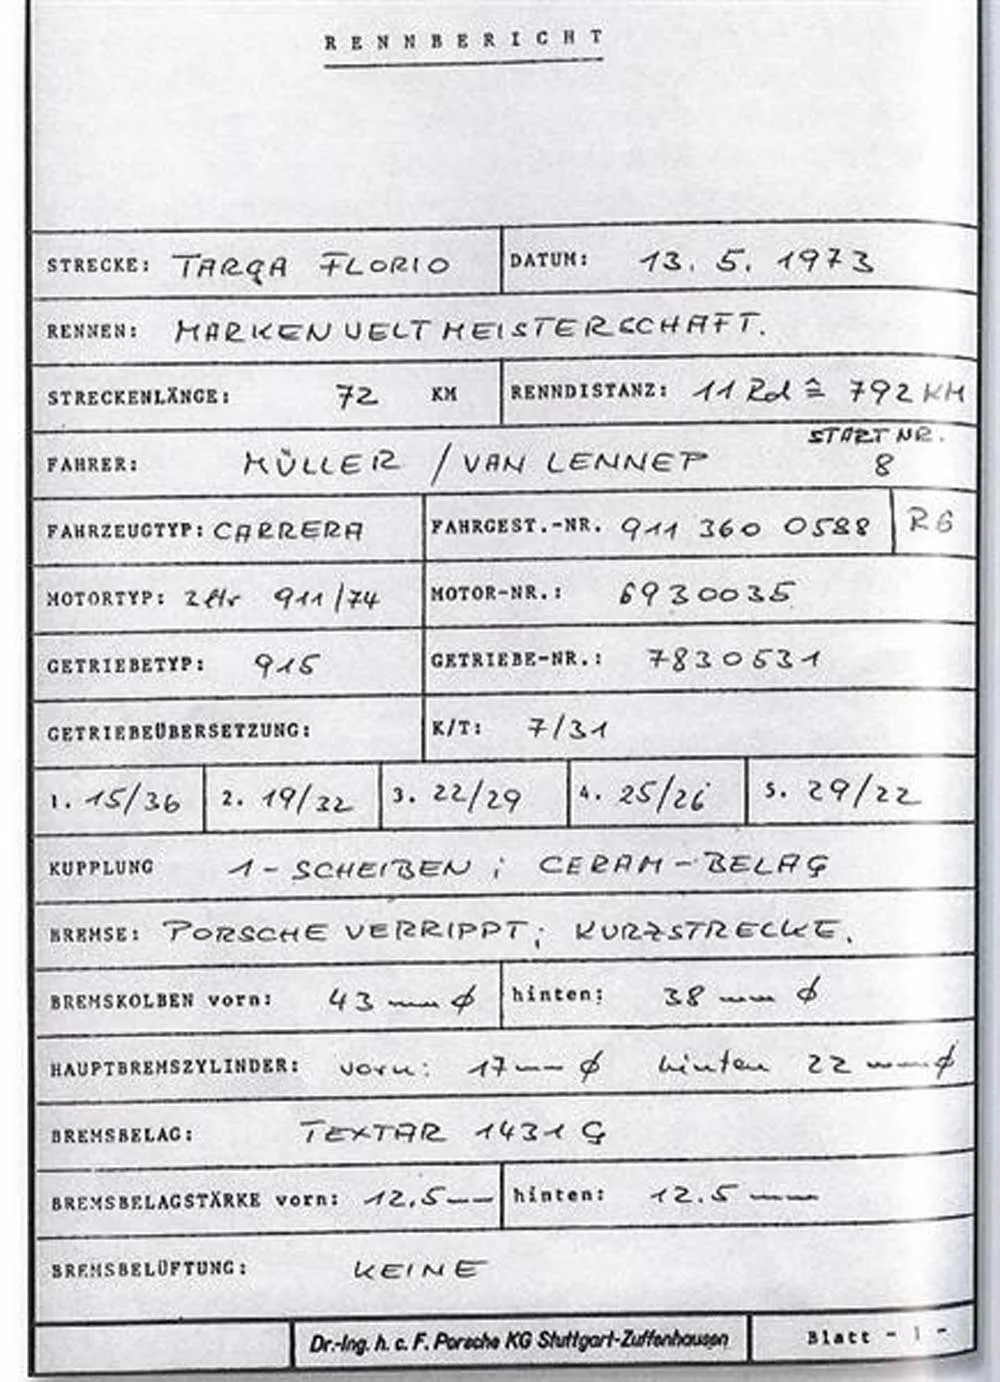 RENNBERICHT
STRECKE: TARGA FLORIO DATUM: 13. 5. 1973
RENNEN: MARKENWELTMEISTERSCHAFT.
STRECKENLÄNGE: 72 KM RENNDISTANZ: 11 Rd ≙ 792 KM
START NR.
FAHRER: MÜLLER / VAN LENNEP 8
FAHRZEUGTYP: CARRERA FAHRGEST.-NR. 911 360 0588 R6
MOTORTYP: 2 ltr 911/74 MOTOR-NR.: 6930035
GETRIEBETYP: 915 GETRIEBE-NR.: 7830531
GETRIEBEÜBERSETZUNG: K/T: 7/31
1. 15/36 2. 19/32 3. 22/29 4. 25/26 5. 29/22
KUPPLUNG 1-SCHEIBEN ; CERAM-BELAG
BREMSE: PORSCHE VERRIPPT; KURZSTRECKE.
BREMSKOLBEN vorn: 43 mm ϕ hinten: 38 mm ϕ
HAUPTBREMSZYLINDER: vorn: 17 mm ϕ hinten 22 mm ϕ
BREMSBELAG: TEXTAR 1431 G
BREMSBELAGSTÄRKE vorn: 12,5 mm hinten: 12.5 mm
BREMSBELÜFTUNG: KEINE
Dr.-Ing. h. c. F. Porsche KG Stuttgart-Zuffenhausen Blatt - 1 -